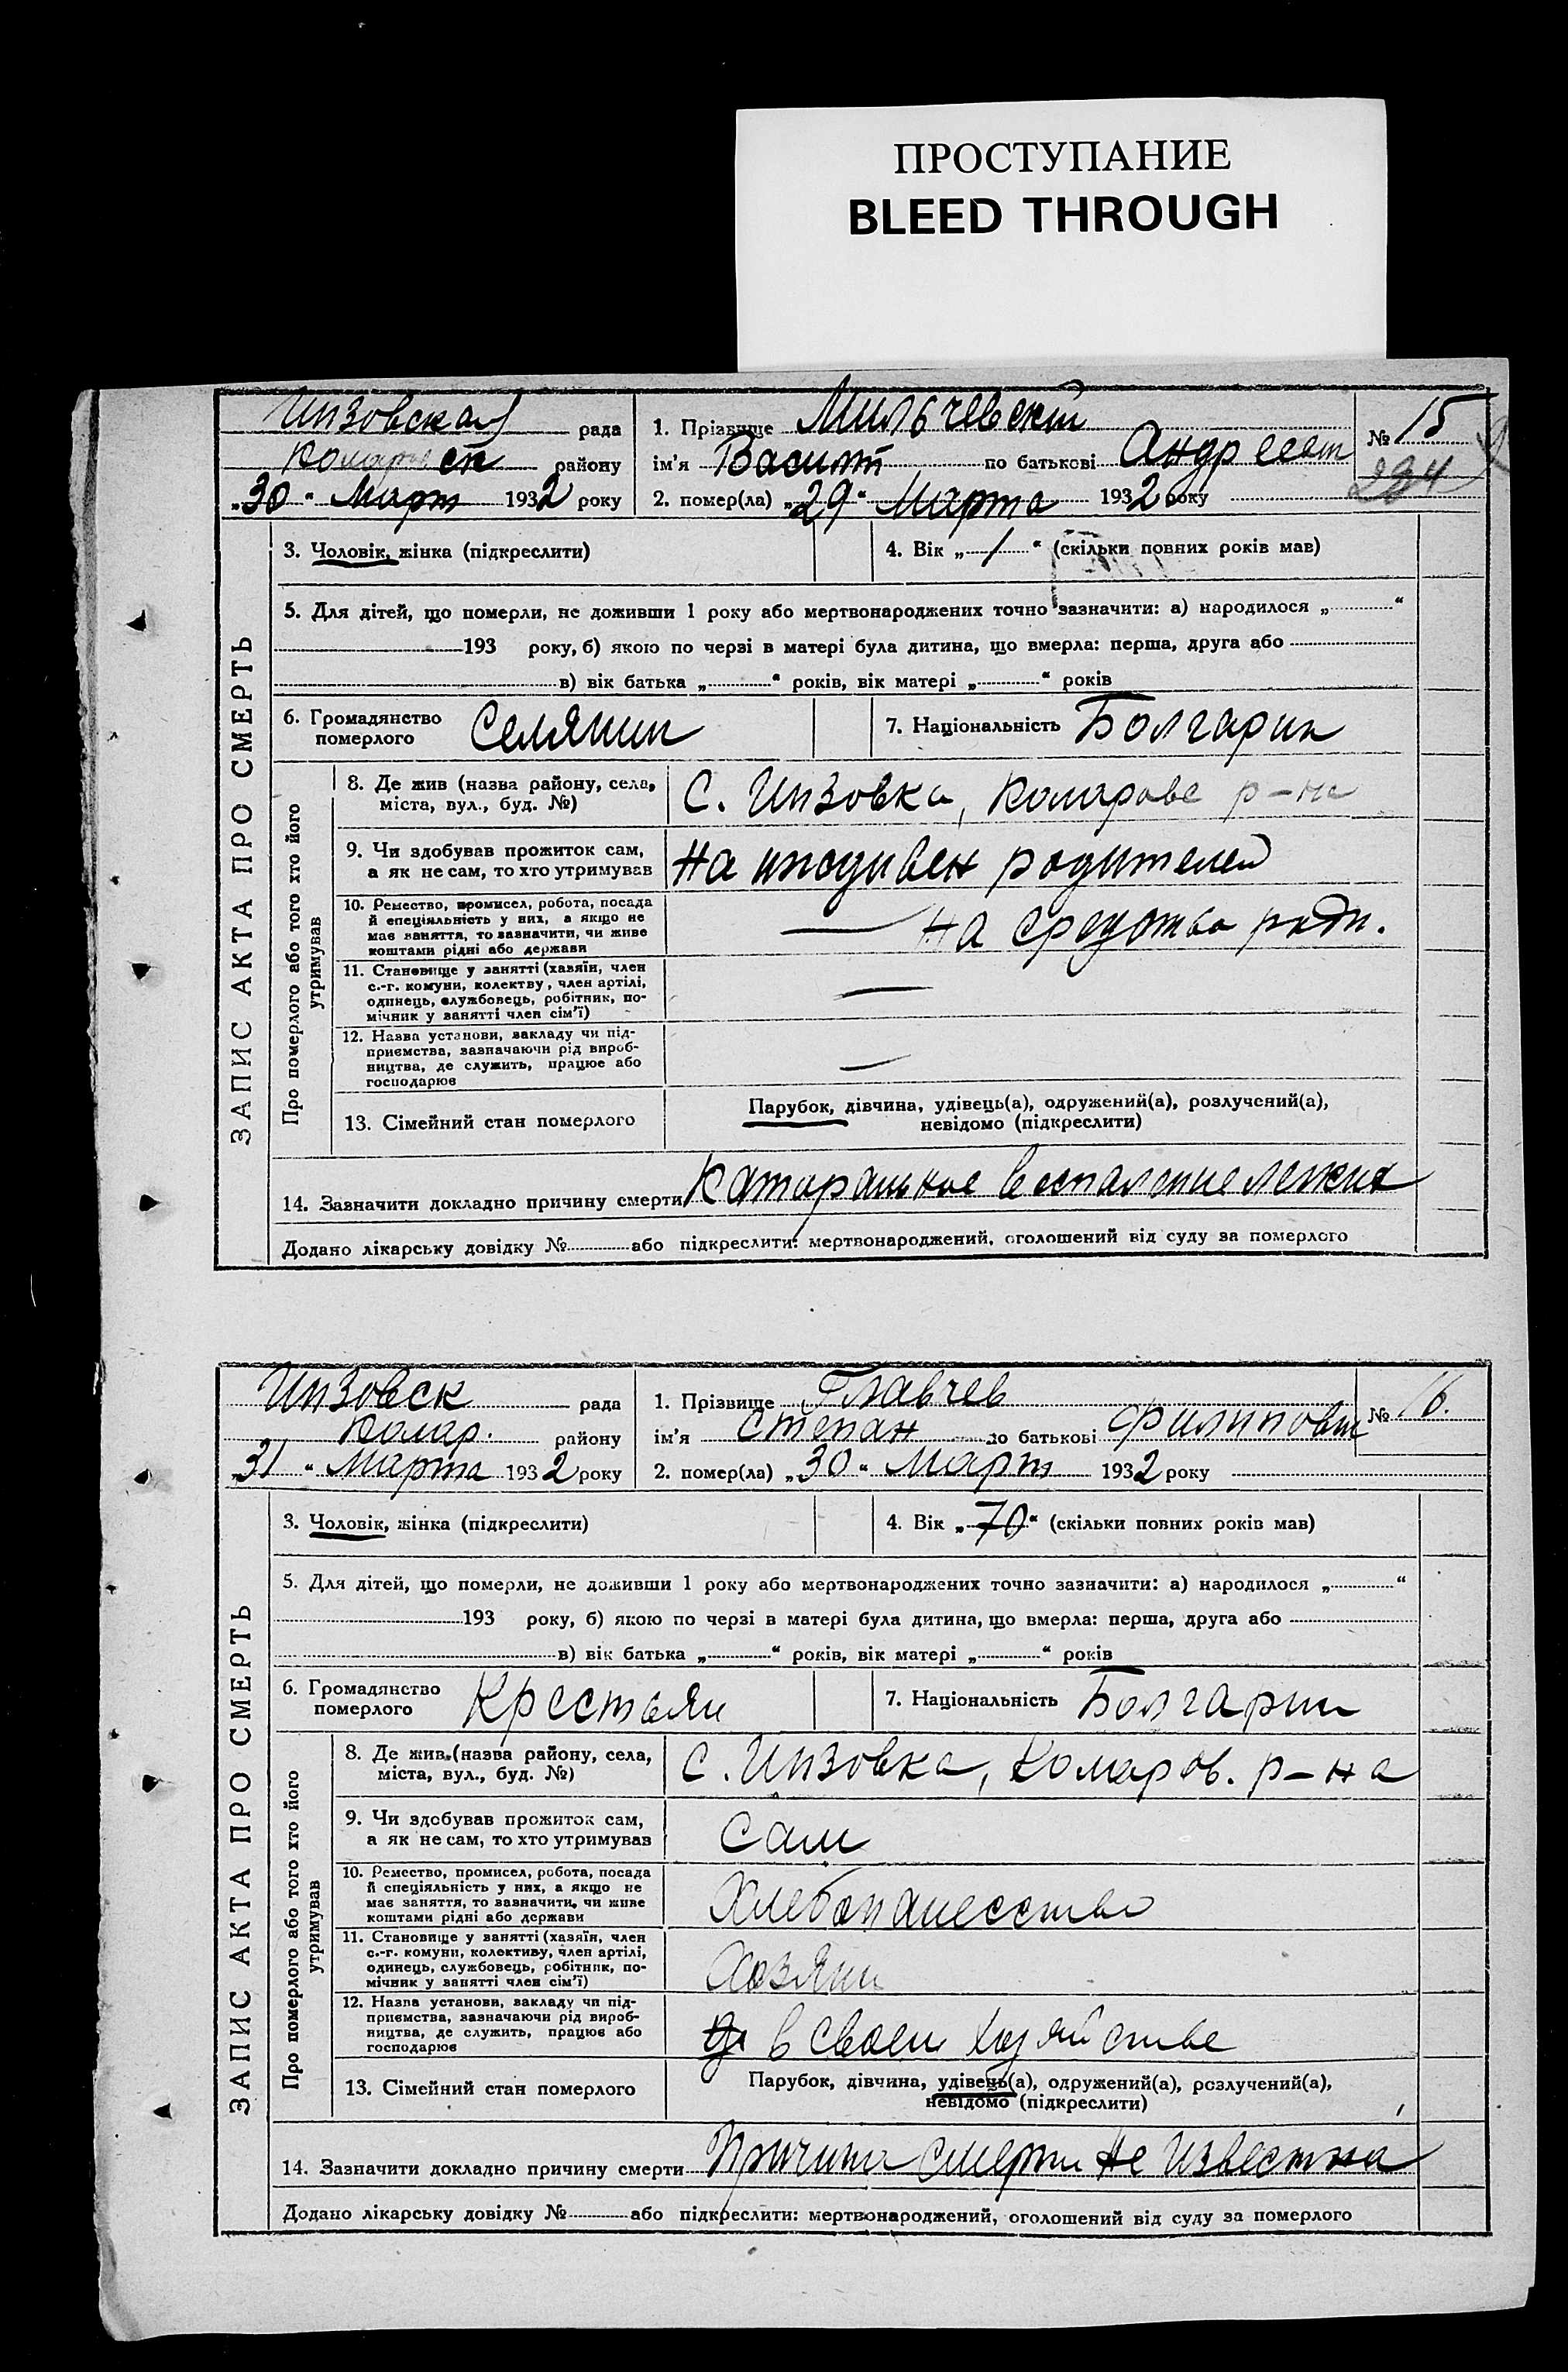 ПРОСТУПАНИЕ
BLEED THROUGH
Инзовская рада
Коларовск району
„30“ Март 1932 року
1. Прізвище Мильчевский
ім’я Василий по батькові Андреевич
2. помер(ла) „29“ Марта 1932 року
№ 15
284
ЗАПИС АКТА ПРО СМЕРТЬ
3. Чоловік, жінка (підкреслити)
4. Вік „1“ (скільки повних років мав)
5. Для дітей, що померли, не доживши 1 року або мертвонароджених точно зазначити: а) народилося „ “
193 року, б) якою по черзі в матері була дитина, що вмерла: перша, друга або
в) вік батька „ “ років, вік матері „ “ років
6. Громадянство померлого Селянин
7. Національність Болгарин
Про померлого або того хто його утримував
8. Де жив (назва району, села,
міста, вул., буд. №)
С. Инзовка, Коларовс р-на
9. Чи здобував прожиток сам,
а як не сам, то хто утримував
На иждивен родителей
10. Ремество, промисел, робота, посада
й спеціяльність у них, а якщо не
має заняття, то зазначити, чи живе
коштами рідні або держави
— На средства родит.
11. Становище у занятті (хазяїн, член
с.-г. комуни, колектву, член артілі,
одинець, службовець, робітник, по-
мічник у занятті член сім’ї)
—
12. Назва установи, закладу чи під-
приємства, зазначаючи рід вироб-
ництва, де служить, працює або
господарює
—
13. Сімейний стан померлого
Парубок, дівчина, удівець(а), одружений(а), розлучений(а),
невідомо (підкреслити)
14. Зазначити докладно причину смерти Катаральное воспаление легких
Додано лікарську довідку № або підкреслити: мертвонароджений, оголошений від суду за померлого
Инзовск рада
Колар. району
„31“ Марта 1932 року
1. Прізвище Главчев
ім’я Степан по батькові Филипович
2. помер(ла) „30“ Март 1932 року
№ 16.
ЗАПИС АКТА ПРО СМЕРТЬ
3. Чоловік, жінка (підкреслити)
4. Вік „70“ (скільки повних років мав)
5. Для дітей, що померли, не доживши 1 року або мертвонароджених точно зазначити: а) народилося „ “
193 року, б) якою по черзі в матері була дитина, що вмерла: перша, друга або
в) вік батька „ “ років, вік матері „ “ років
6. Громадянство померлого Крестьян
7. Національність Болгарин
Про померлого або того хто його утримував
8. Де жив (назва району, села,
міста, вул., буд. №)
С. Инзовка, Коларов. р-на
9. Чи здобував прожиток сам,
а як не сам, то хто утримував
Сам
10. Ремество, промисел, робота, посада
й спеціяльність у них, а якщо не
має заняття, то зазначити, чи живе
коштами рідні або держави
11. Становище у занятті (хазяїн, член
с.-г. комуни, колективу, член артілі,
одинець, службовець, робітник, по-
мічник у занятті член сім’ї)
Хозяин
12. Назва установи, закладу чи під-
приємства, зазначаючи рід вироб-
ництва, де служить, працює або
господарює
в своем хозяйстве
13. Сімейний стан померлого
Парубок, дівчина, удівець(а), одружений(а), розлучений(а),
невідомо (підкреслити)
14. Зазначити докладно причину смерти Причина смерти не известна
Додано лікарську довідку № або підкреслити: мертвонароджений, оголошений від суду за померлого